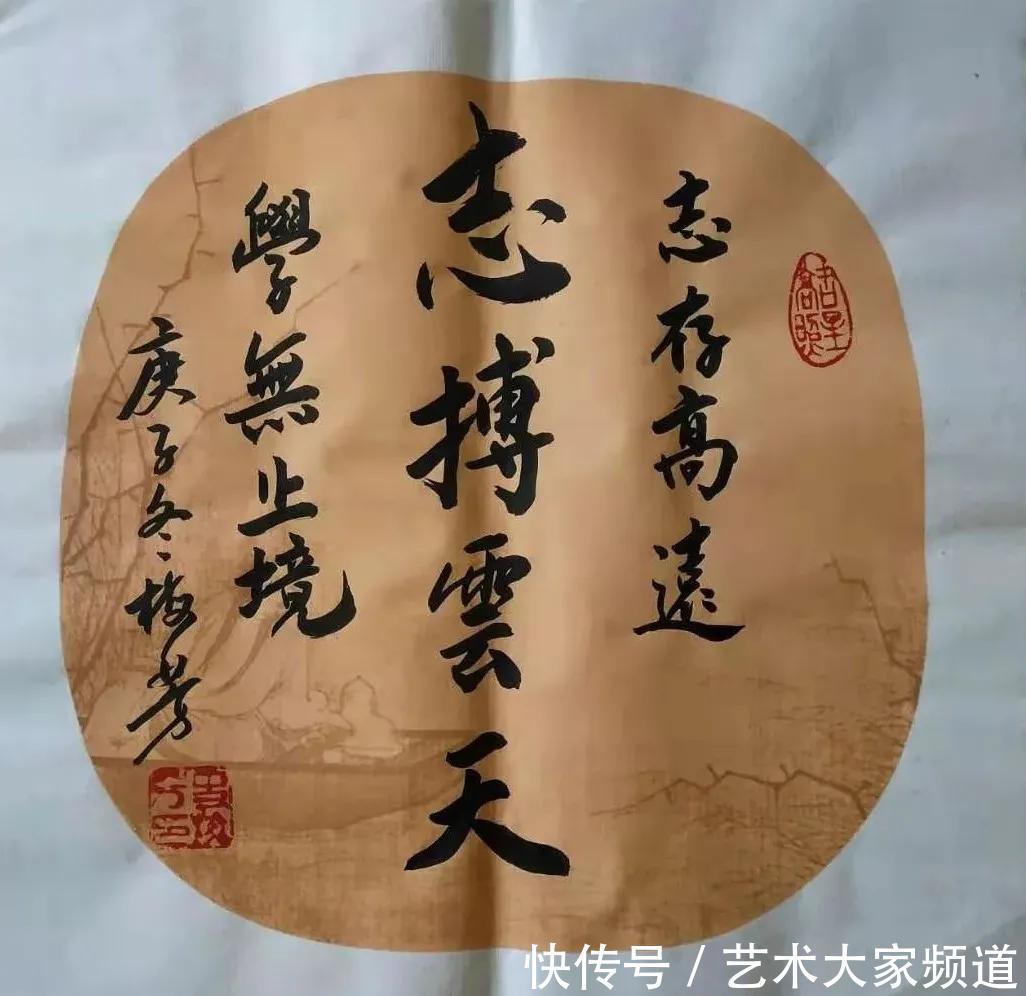 志存高遠
志搏雲天
學無止境
庚子冬梅芳
吉星高照
快传号 / 艺术大家频道